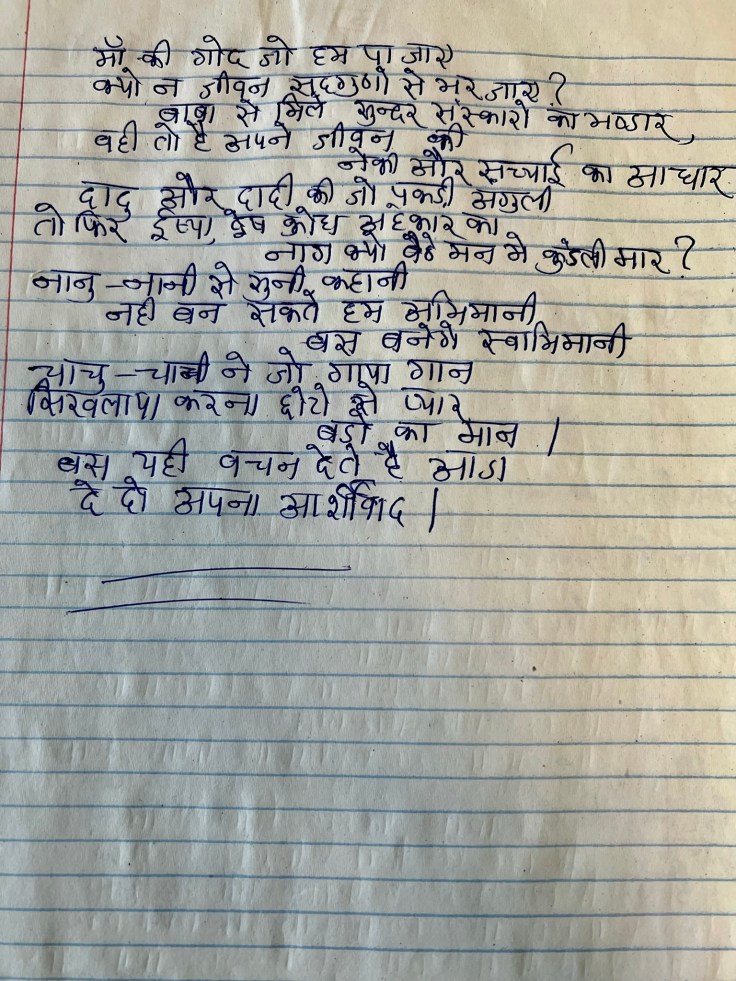 माँ की गोद जो हम पा जाए
क्यो न जीवन सद्गुणो से भर जाए?
बाबा से मिले सुन्दर संस्कारो का भण्डार,
वही तो है अपने जीवन की
नेकी और सच्चाई का आधार
दादु और दादी की जो पकडी अंगुली
तो फिर ईष्या, द्वेष क्रोध अहंकार का
नाग क्यो बैठे मन मे कुंडली मार?
नानु-नानी से सुनी कहानी
नही बन सकते हम अभिमानी
बस बनेगे स्वाभिमानी
चाचु-चाची ने जो गाया गान
सिखलाया करना छोटो से प्यार
बड़ो का मान।
बस यही वचन देते है आज
दे दो अपना आर्शीवाद।